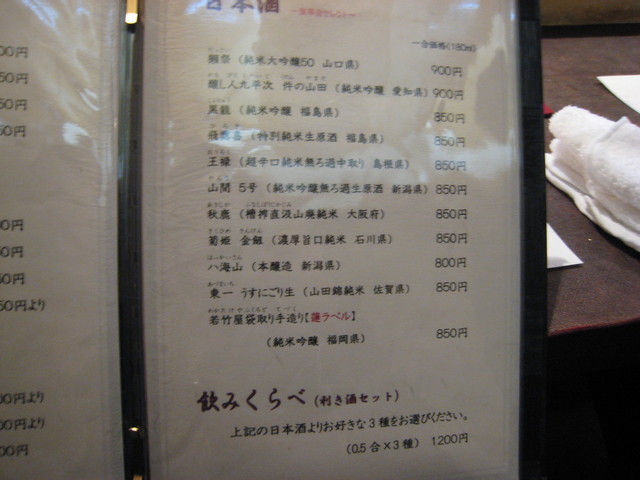 日本酒
一合価格(180ml)
獺祭 (純米大吟醸50 山口県) 900円
醸し人九平次 件の山田 (純米吟醸 愛知県) 900円
黒龍 (純米吟醸 福島県) 850円
飛露喜 (特別純米生原酒 福島県) 850円
王禄 (超辛口純米無ろ過中取り 島根県) 850円
山間 5号 (純米吟醸無ろ過生原酒 新潟県) 850円
秋鹿 (槽搾直汲山廃純米 大阪府) 850円
菊姫 金劔 (濃厚旨口純米 石川県) 850円
八海山 (本醸造 新潟県) 800円
東一 うすにごり生 (山田錦純米 佐賀県) 850円
若竹屋袋取り手造り【蓮ラベル】
(純米吟醸 福岡県) 850円
飲みくらべ (利き酒セット)
上記の日本酒よりお好きな3種をお選びください。
(0.5合×3種) 1200円
00円
50円
50円
50円
00円
50円
50円
50円より
00円より
00円より
00円